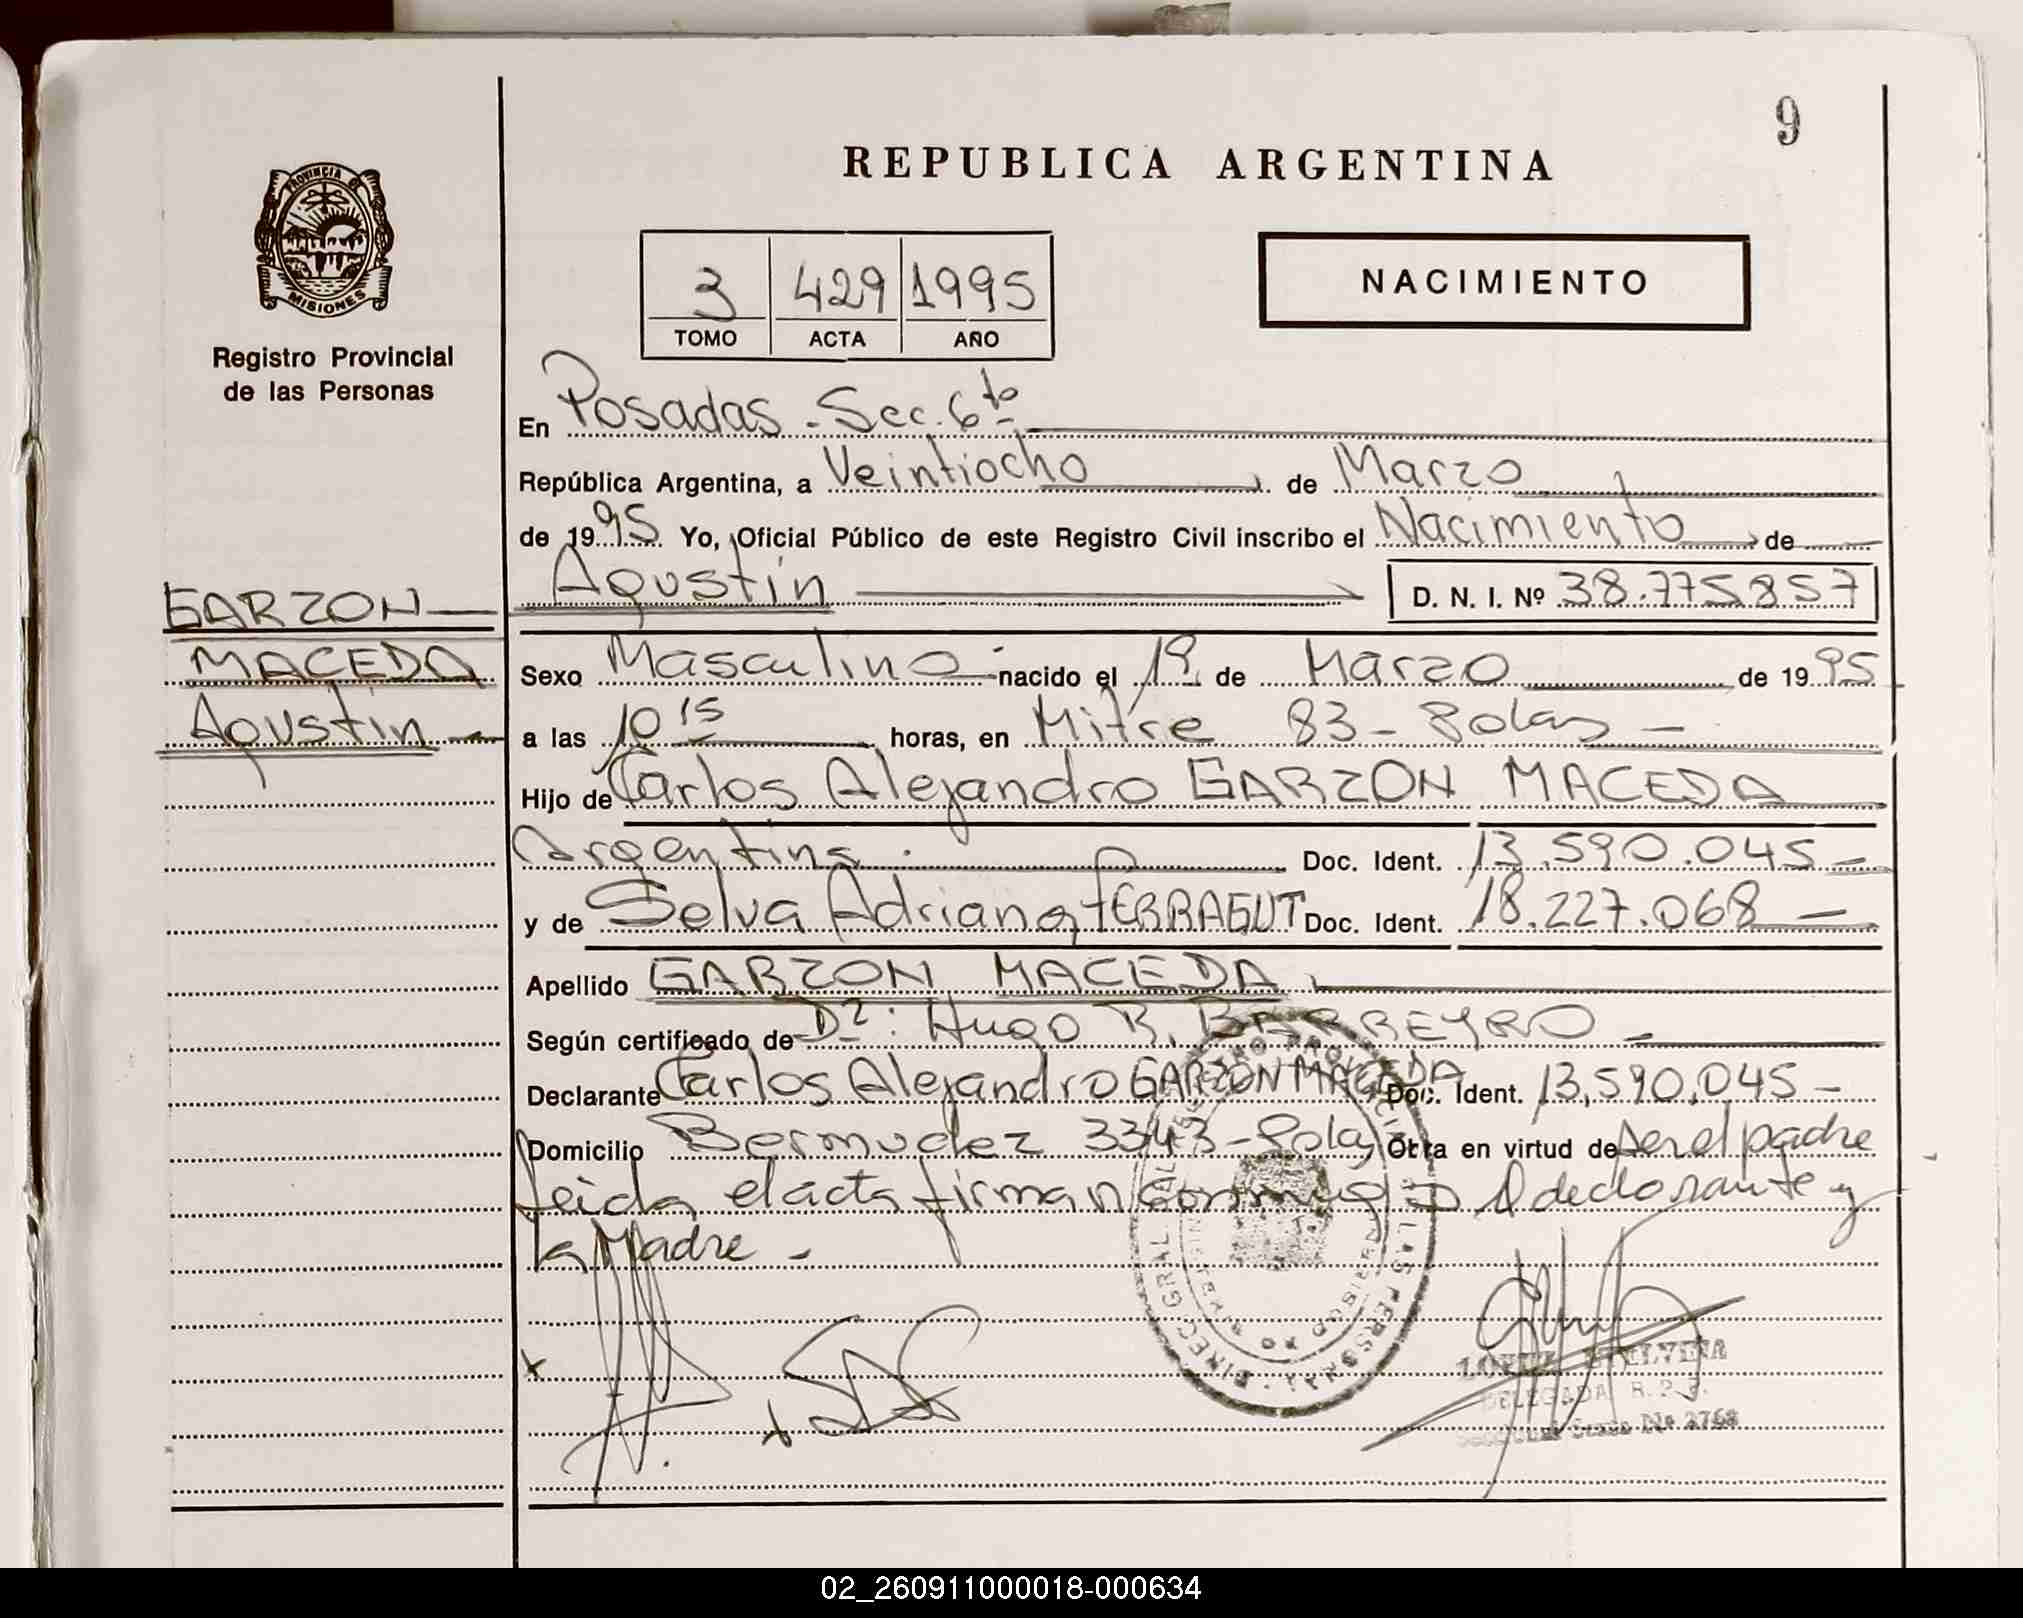 9
REPUBLICA ARGENTINA
PROVINCIA DE
MISIONES
Registro Provincial
de las Personas
3 429 1995
TOMO ACTA AÑO
NACIMIENTO
En Posadas - Sec. 6to
República Argentina, a Veintiocho de Marzo
de 1995 Yo, Oficial Público de este Registro Civil inscribo el Nacimiento de
GARZON
MACEDA
Agustin
Agustin D. N. I. Nº 38.775.857
Sexo Masculino nacido el 19 de Marzo de 1995
a las 10 15 horas, en Mitre 83 - Pdas -
Hijo de Carlos Alejandro GARZON MACEDA
Argentina. Doc. Ident. 13.590.045 -
y de Selva Adriana FERRAGUT Doc. Ident. 18.227.068 -
Apellido GARZON MACEDA
Según certificado de Dr: Hugo R. BARREYRO -
Declarante Carlos Alejandro GARZON MACEDA Doc. Ident. 13.590.045 -
Domicilio Bermudez 3343 - Pdas Obra en virtud de ser el padre
Leida el acta firman conmigo el declarante y
la Madre -
DELEGADA R. P. P.
02_260911000018-000634